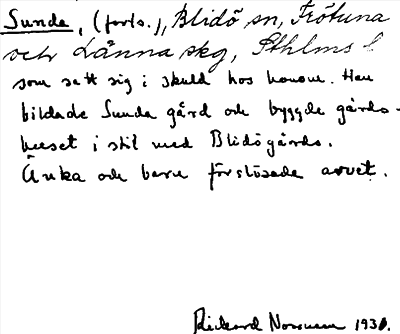 Sunda, (forts.), Blidö sn, Frötuna
och Länna skg, Sthlms l
som satt sig i skuld hos honom. Han
bildade Sunda gård och byggde gårds-
huset i stil med Blidögårds.
Änka och barn förslösade arvet.
Rickard 1930.